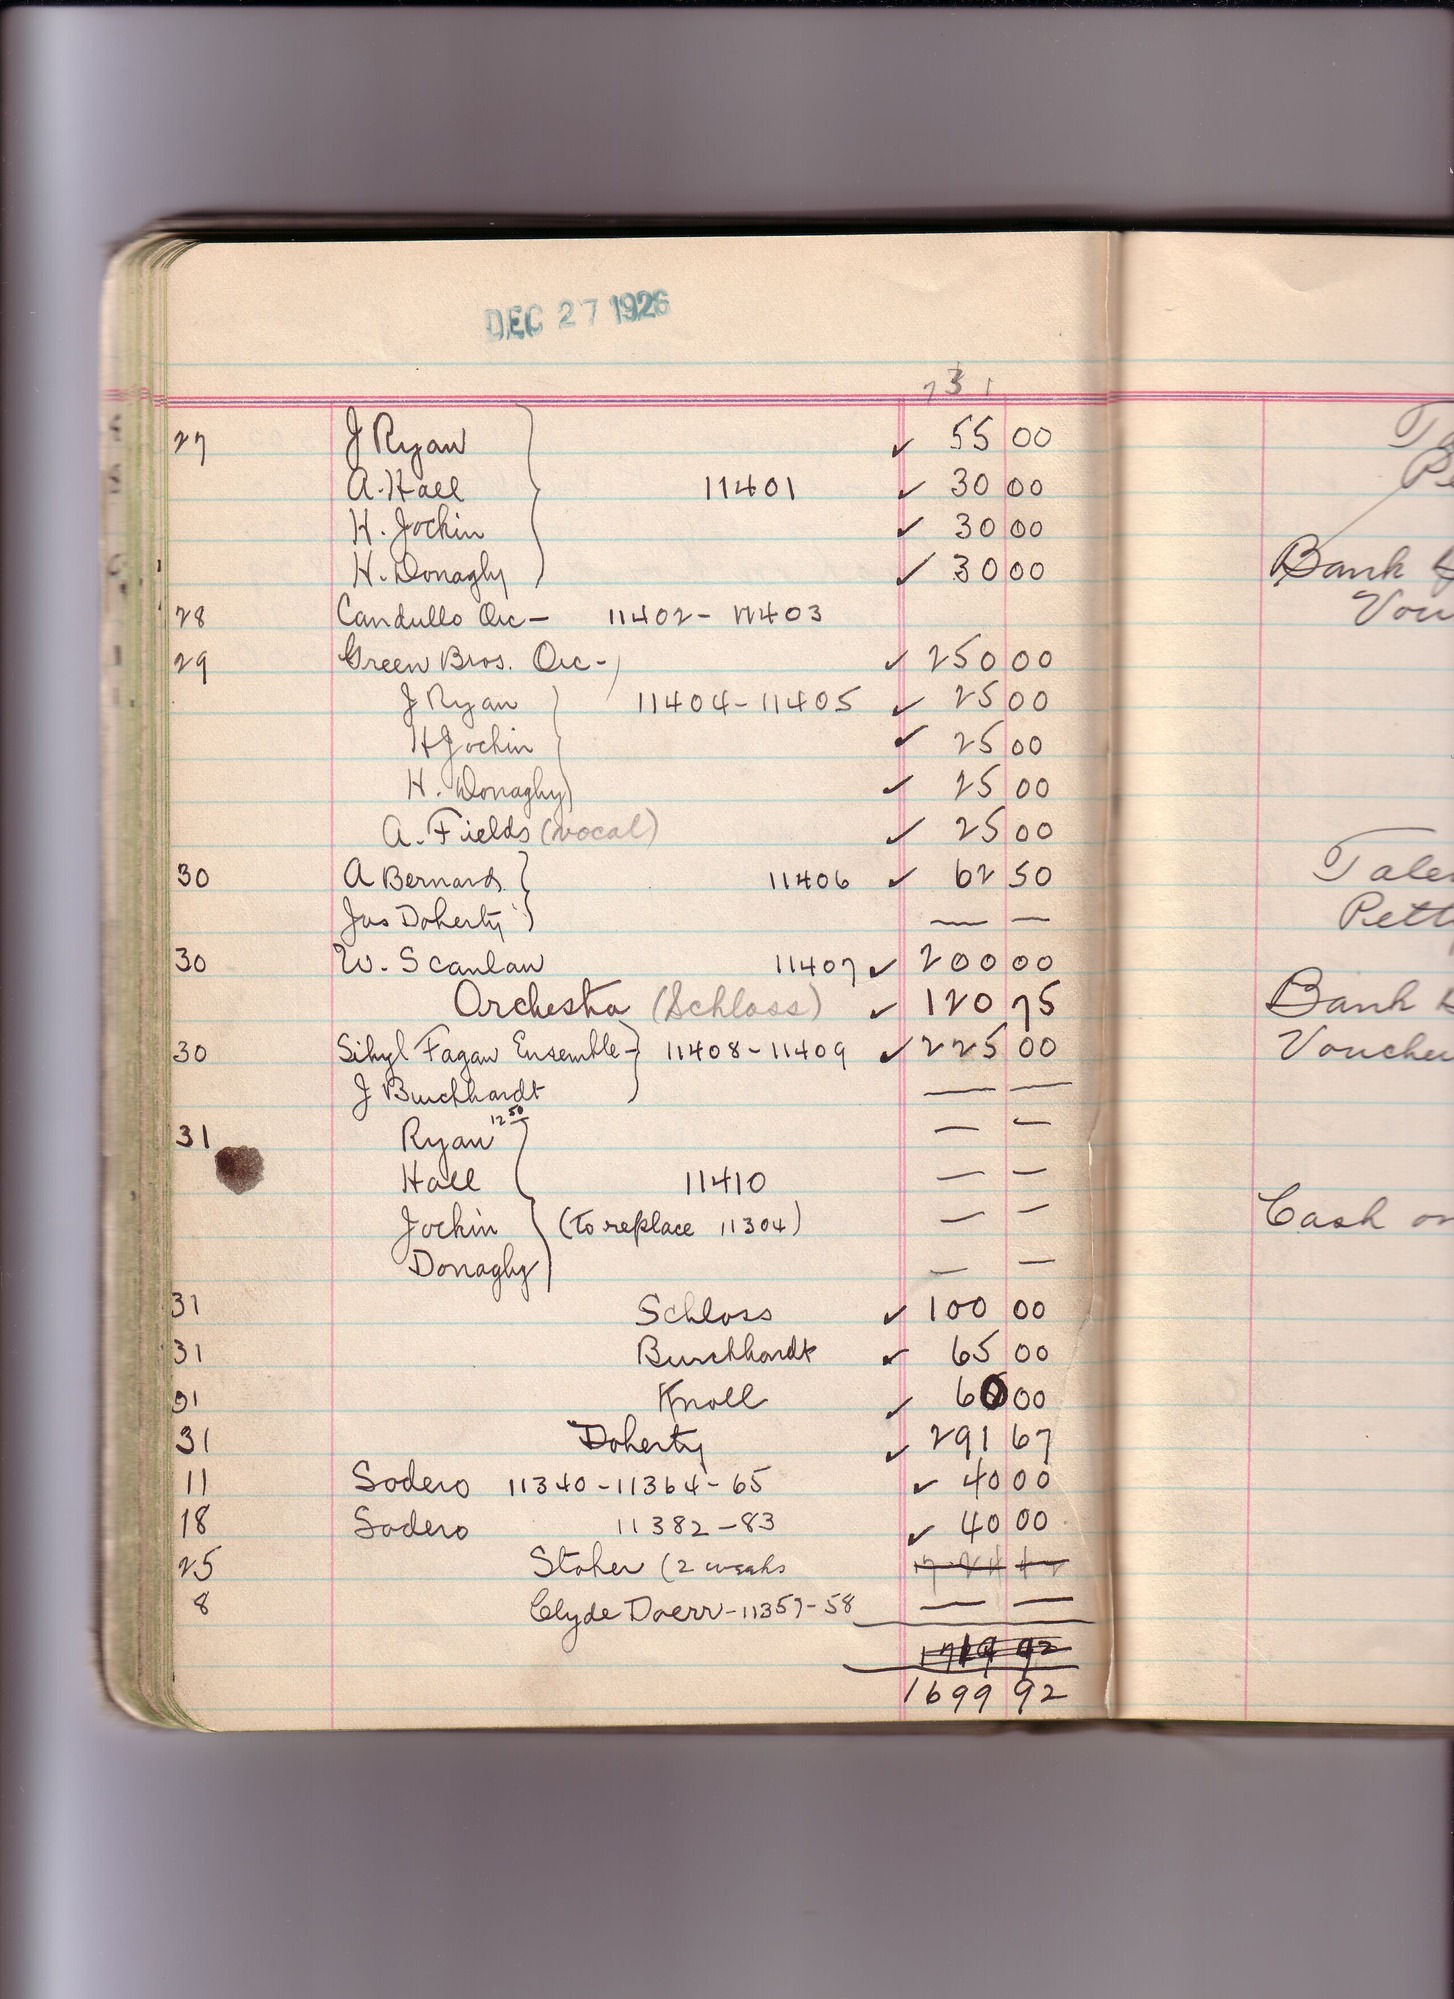 DEC 27 1926
731
27 J Ryan 55 00
A. Hall 11401 30 00
H. Jockin 30 00
H. Donaghy 30 00
28 Candullo Orc- 11402-11403
29 Green Bros. Orc- 250 00
J Ryan 11404-11405 25 00
H Jockin 25 00
H. Donaghy 25 00
A. Fields (vocal) 25 00
30 A Bernard 11406 62 50
Jas Doherty — —
30 W. Scanlan 11407 200 00
Orchestra (Schloss) 120 75
30 Sibyl Fagan Ensemble- 11408-11409 225 00
J Burckhardt — —
31 Ryan 12 50 — —
Hall 11410 — —
Jockin (to replace 11304) — —
Donaghy — —
31 Schloss 100 00
31 Burckhardt 65 00
31 Knoll 60 00
31 Doherty 291 67
11 Sodero 11340-11364-65 40 00
18 Sodero 11382-83 40 00
25 (2 weeks
8 Clyde Doerr-11357-58 — —
1719 92
1699 92
Bank
Vou
Tale
Pett
Bank
Voucher
Cash on